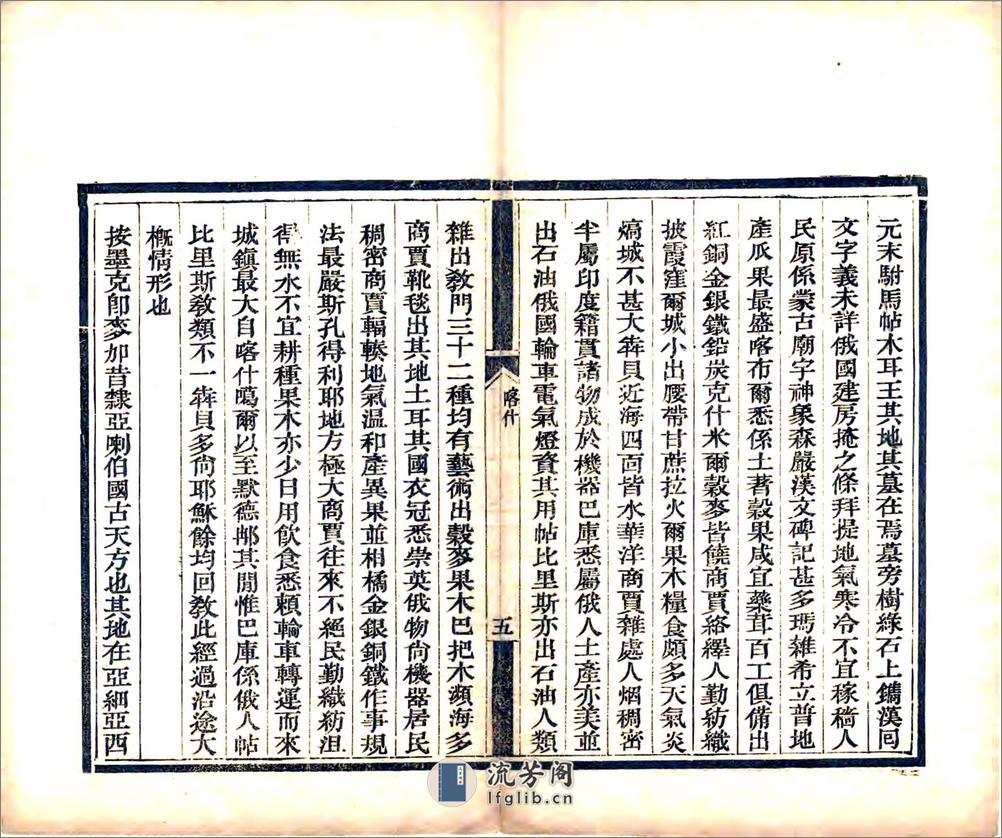 元末駙馬帖木耳王其地其墓在焉墓旁樹綠石上鐫漢回
文字義未詳俄國建房掩之條拜提地氣寒冷不宜稼穡人
民原係蒙古廟宇神象森嚴漢文碑記甚多瑪雜希立普地
產瓜果最盛喀布爾悉係土著穀果咸宜藥茸百工俱備出
紅銅金銀鐵鉛炭克什米爾穀麥皆饒商賈絡繹人勤紡織
披霞窪爾城小出腰帶甘蔗拉火爾果木糧食頗多天氣炎
熇城不甚大犇貝近海四面皆水華洋商賈雜處人烟稠密
半屬印度籍貫諸物成於機器巴庫悉屬俄人土產亦美並
出石油俄國輪車電氣燈資其用帖比里斯亦出石油人類
喀什
五
雜出敎門三十二種均有藝術出穀麥果木巴把木瀕海多
商賈靴毯出其地土耳其國衣冠悉崇英俄物尙機器居民
稠密商賈輻輳地氣溫和產異果並相橘金銀銅鐵作事規
法最嚴斯孔得利耶地方極大商賈往來不絕民勤織紡沮
得無水不宜耕種果木亦少日用飲食悉賴輪車轉運而來
城鎮最大自喀什噶爾以至默德那其閒惟巴庫係俄人帖
比里斯敎類不一犇貝多尙耶穌餘均回敎此經過沿途大
槪情形也
按墨克卽麥加昔隸亞喇伯國古天方也其地在亞細亞西
流芳阁
lfglib.cn